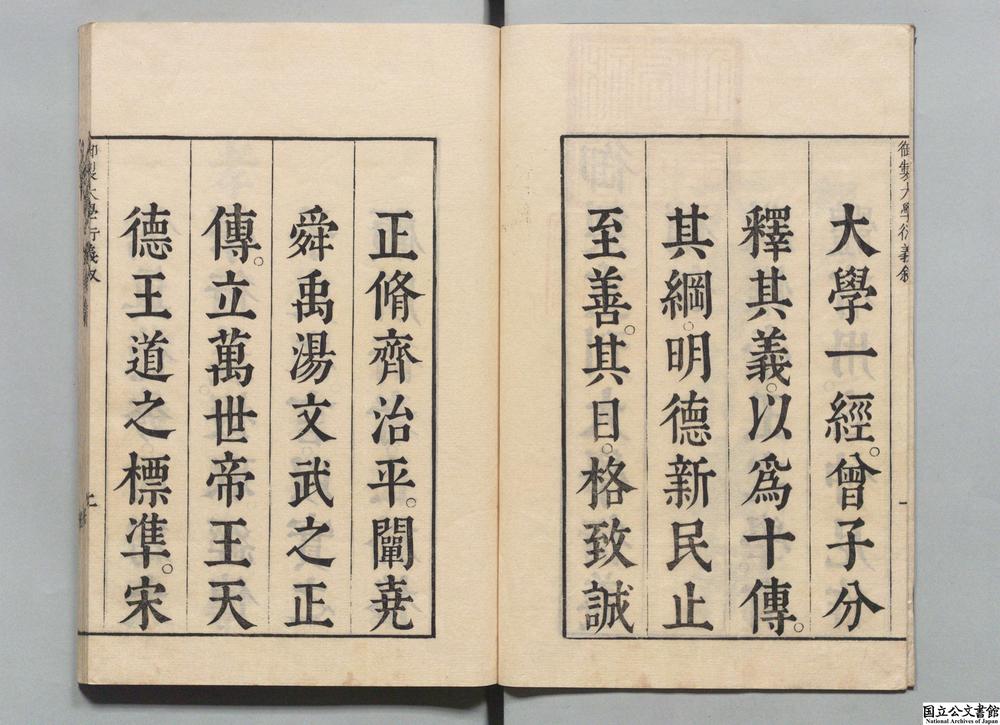 御製大學衍義敘
大學一經。曾子分
釋其義。以爲十傳。
其綱。明德新民止
至善。其目。格致誠
正脩齊治平。闡堯
舜禹湯文武之正
傳。立萬世帝王天
德王道之標準。宋
国立公文書館
National Archives of Japan